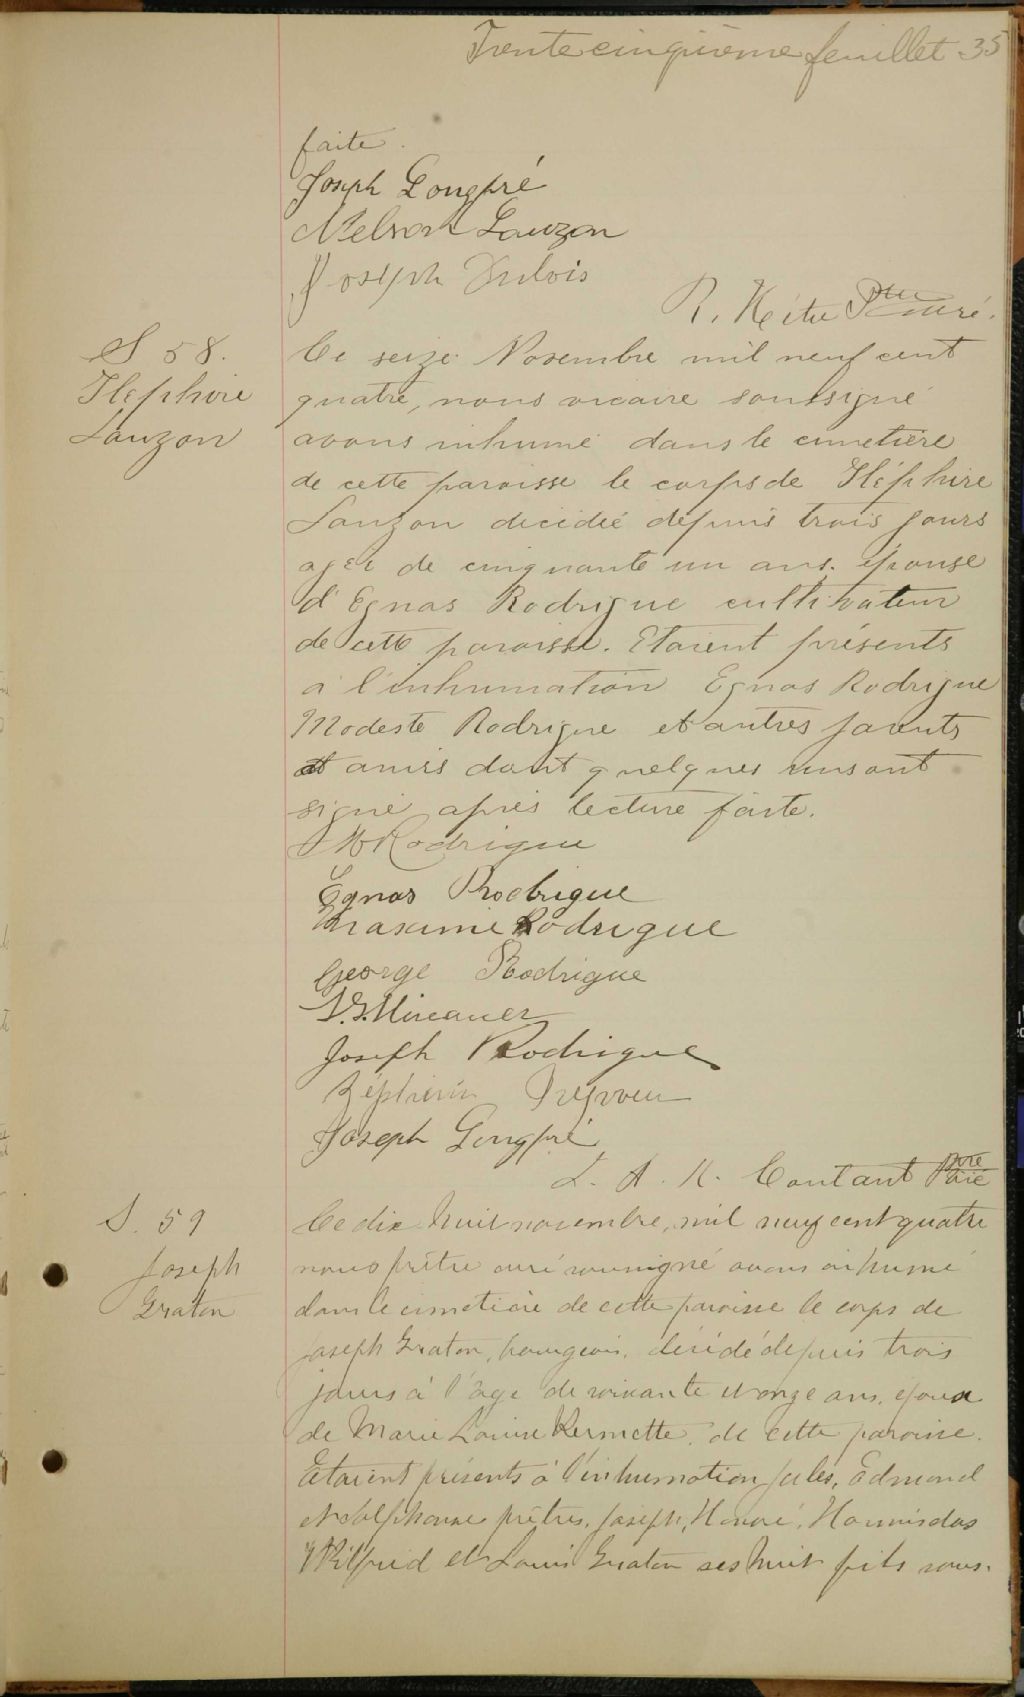 Trente cinquième feuillet 35
faite.
Joseph Longpré
Nelson Lauzon
Joseph Dubois
Ptre curé.
S 58.
Lauzon
Ce seize Novembre mil neuf cent
quatre, nous vicaire soussigné
avons inhumé dans le cimetière
de cette paroisse le corps de
Lauzon décédée depuis trois jours
agée de cinquante un ans. épouse
d'Egnas Rodrigue cultivateur
de cette paroisse. Etaient présents
a l'inhumation Egnas Rodrigue
Modeste Rodrigue et autres parents
et amis dont quelques uns ont
signé après lecture faite.
M Rodrigue
Egnas Rodrigue
Maxime Rodrigue
George Rodrigue
Joseph Rodrigue
Joseph Longpré
L. A. N. Contant Ptre
S. 59
Joseph
Graton
Ce dix huit novembre, mil neuf cent quatre
nous prêtre curé soussigné avons inhumé
dans le cimetière de cette paroisse le corps de
Joseph Graton, bourgeois, décédé depuis trois
jours à l'âge de soixante et onze ans, époux
de Marie Louise Kermette, de cette paroisse.
Etaient présents à l'inhumation Jules, Edmond
et Adolphonse prêtres, Joseph, Honoré, Hormisdas
Wilfrid et Louis Graton ses huit fils sous-